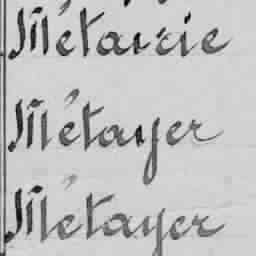 Métairie
Métayer
Métayer